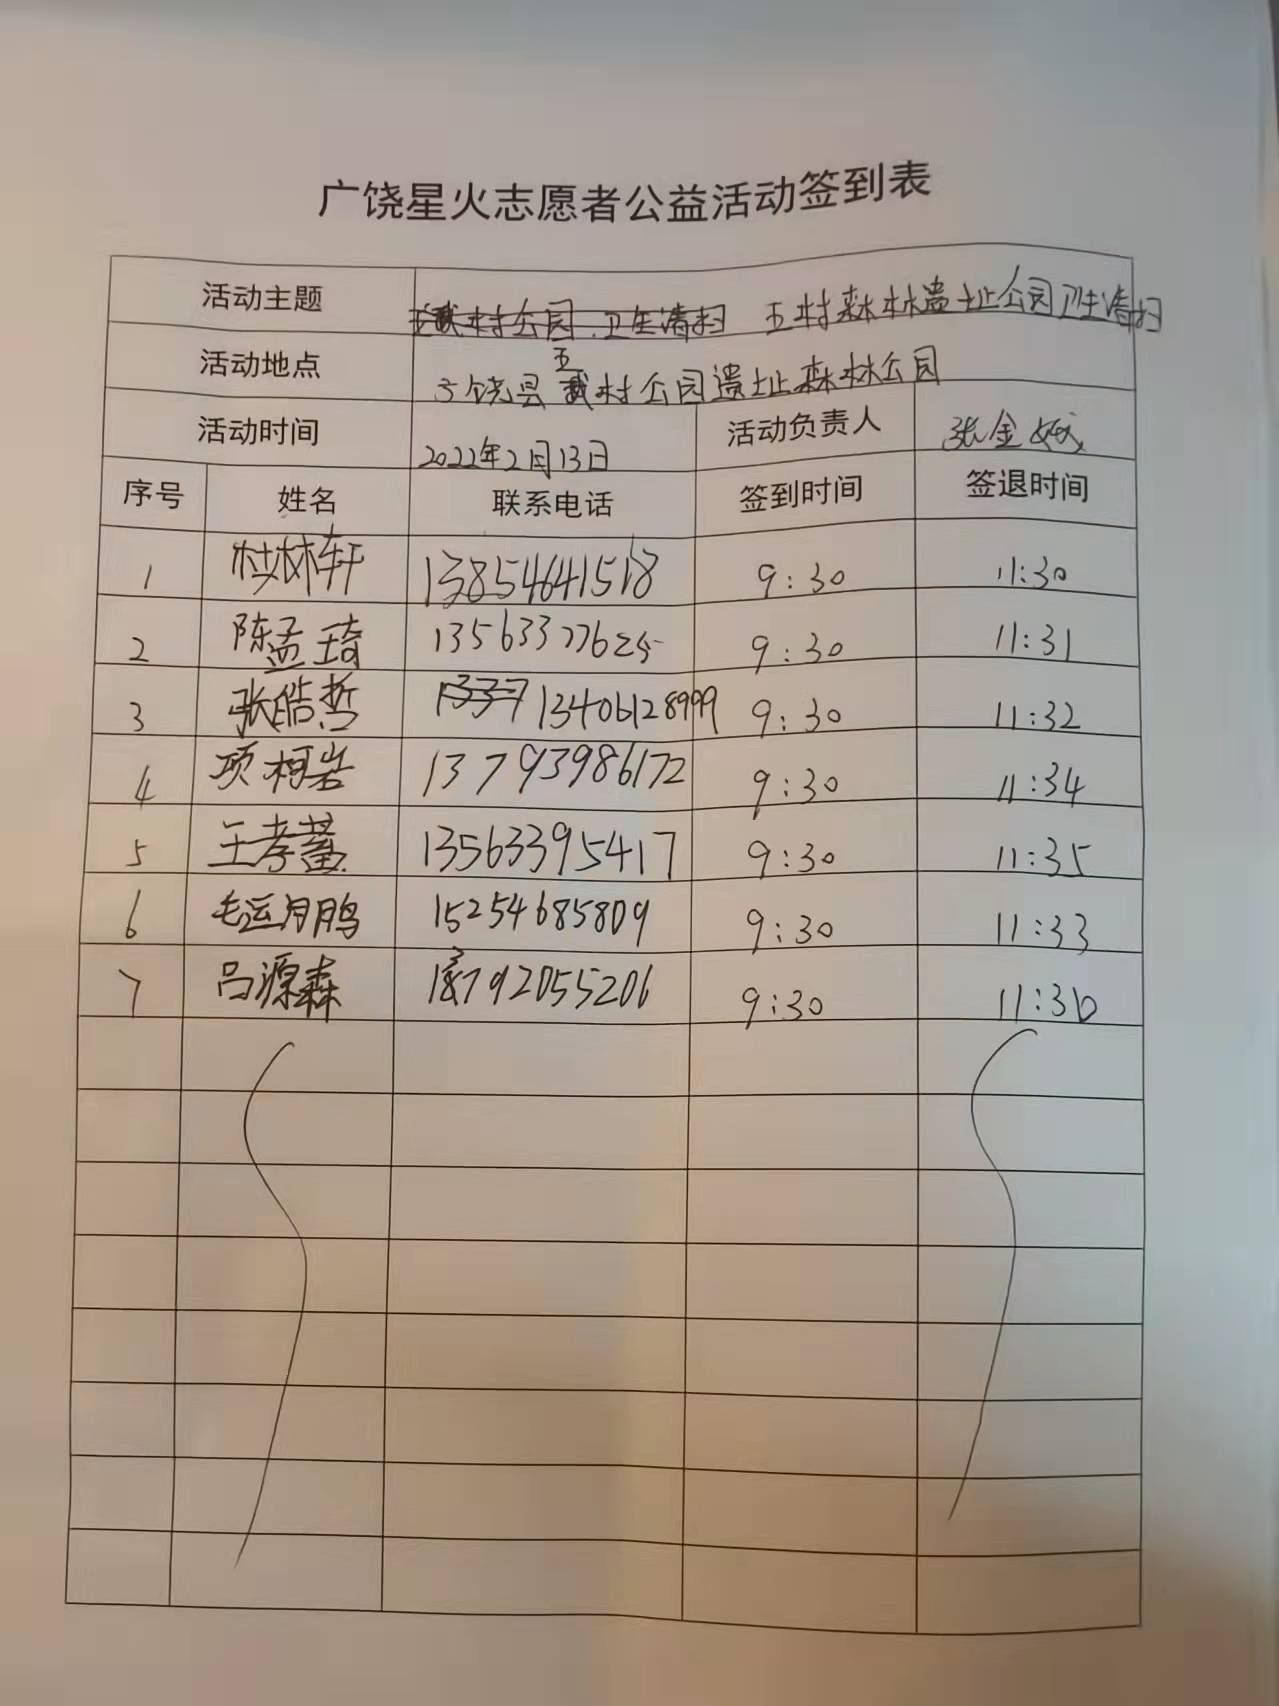 广饶星火志愿者公益活动签到表
活动主题 五村森林遗址公园卫生清扫
活动地点 广饶县五村公园遗址森林公园
活动时间 2022年2月13日 活动负责人 张金城
序号 姓名 联系电话 签到时间 签退时间
1 林轩 13854641518 9:30 11:30
2 陈孟琦 9:30 11:31
3 张皓哲 13406128999 9:30 11:32
4 项柯岩 13793986172 9:30 11:34
5 王孝 13563395417 9:30 11:35
6 毛运鹏 15254685809 9:30 11:33
7 吕源森 9:30 11:30